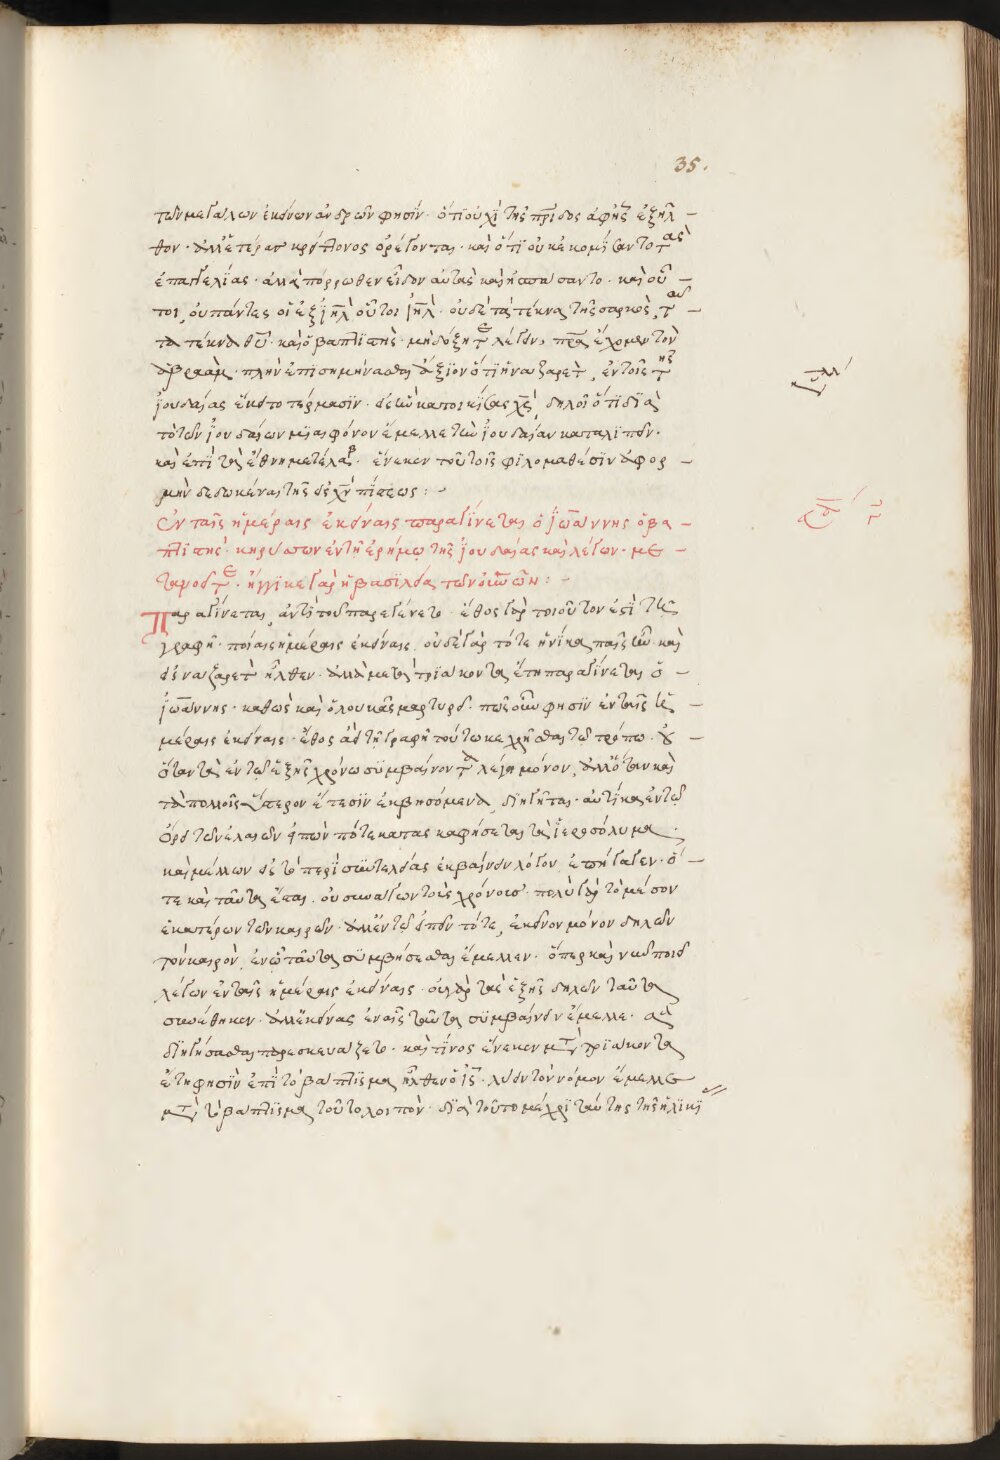 35.
τῶν μεγάλων ἐκείνων ἀνδρῶν φησὶν· ὅτι οὐχὶ τῆς πρίδος ἀφ' ἧς ἐξῆλ-
θον· ἀλλ' ἑτέρας κρείττονος ὀρέγονται· καὶ ὅτι οὐκ ἐκομίσαντο τὰς
ἐπαγγελίας· ἀλλὰ πόρρωθεν εἶδον αὐτὰς καὶ ἠσπάσαντο· καὶ οὗ-
τοι, οὐ πάντες οἱ ἐξ ἰηλ οὗτοι ἰηλ· οὐδὲ τὰ τέκνα τῆς σαρκὸς, ταῦ-
τα τέκνα θῦ· καὶ ὁ βαπτιστὴς· μὴ δόξητε λέγειν, πρα ἔχομεν τὸν
ἀβραάμ· πλὴν ἐπισημήνασθαι ἄξιον ὅτι ἡ ναζαρὲτ, ἐν τοῖς τῆς
ἰουδαίας
δηλοῖ ὅτι διὰ
τὸ τῶν ἰουδαίων μιαιφόνον ἔμελλε τὴν ἰουδαίαν καταλιπεῖν·
καὶ ἐπὶ τὰ ἔθνη μεταβ· ἕνεκεν τοῦ τοῖς φιλομαθέσιν ἀφορ-
μὴν δεδωκέναι τῆς εἰς χν πίστεως:
Ἐν ταῖς ἡμέραις ἐκείναις παραγίνεται ὁ ἰωάννης ὁ βα-
πτιστὴς· κηρύσσων ἐν τῇ ἐρήμῳ τῆς ἰουδαίας καὶ λέγων· με-
τανοεῖτε· ἤγγικε γὰρ ἡ βασιλεία τῶν οὐνῶν:
Παραγίνεται, ἀντὶ τοῦ παρεγένετο· ἔθος γὰρ τοιοῦτον ἐστὶ τῇ
γραφῇ· ποίαις ἡμέραις ἐκείναις. οὐδὲ γὰρ τότε ἡνίκα παῖς ἦν καὶ
εἰς ναζαρὲτ ἦλθεν· ἀλλὰ μετὰ τριάκοντα ἔτη παραγίνεται ὁ-
ἰωάννης· καθὼς καὶ ὁ λουκᾶς μαρτυρεῖ· πῶς οὖν φησὶν ἐν ταῖς ἡ-
μέραις ἐκείναις· ἔθος ἀεὶ τῇ γραφῇ τούτω κεχρῆσθαι τῷ τρόπω· οὐχ
ὅταν τὰ ἐν τῷ ἑξῆς χρόνω συμβαίνοντα λέγη μόνον, ἀλλ' ὅταν καὶ
τὰ πολλοῖς ὕστερον ἔτεσιν ἐκβησόμενα, διηγῆται· αὐτίκα ἐν τῷ
ὄρει τῶν ἐλαιῶν εἰπὼν πότε
τὰ ἱεροσόλυμα·
καὶ μέλλων εἰς τὸ περὶ συντελείας ἐκβαίνειν λόγον, ἐπήγαγεν· ὅ-
τε καὶ ταῦτα ἔσται. οὐ συνάγων τοὺς χρόνους· πολὺ γὰρ τὸ μέσον
ἑκατέρων τῶν καιρῶν· ἀλλ' ἐν τῷ εἰπεῖν τότε, ἐκεῖνον μόνον δηλῶν
τὸν καιρὸν, ἐν ᾧ ταῦτα συμβήσεσθαι ἔμελλεν· ὅπερ καὶ νῦν ποιεῖ
λέγων ἐν ταῖς ἡμέραις ἐκείναις· οὐ γὰρ τὰς ἑξῆς δηλῶν ταῦτα
συνέθηκεν· ἀλλ' ἐκείνας ἐν αἷς ταῦτα συμβαίνειν ἔμελλε· ἃς
διηγήσασθαι παρεσκευάζετο· καὶ τίνος ἕνεκεν μτ τριάκοντα
ἔτη φησὶν ἐπὶ τὸ βάπτισμα ἦλθεν ὁ ις· λύειν τὸν νόμον ἔμελλε
μτ τὸ βάπτισμα τοῦτο λοιπὸν· διὰ τοῦτο μέχρι ταύτης τῆς ἡλικί